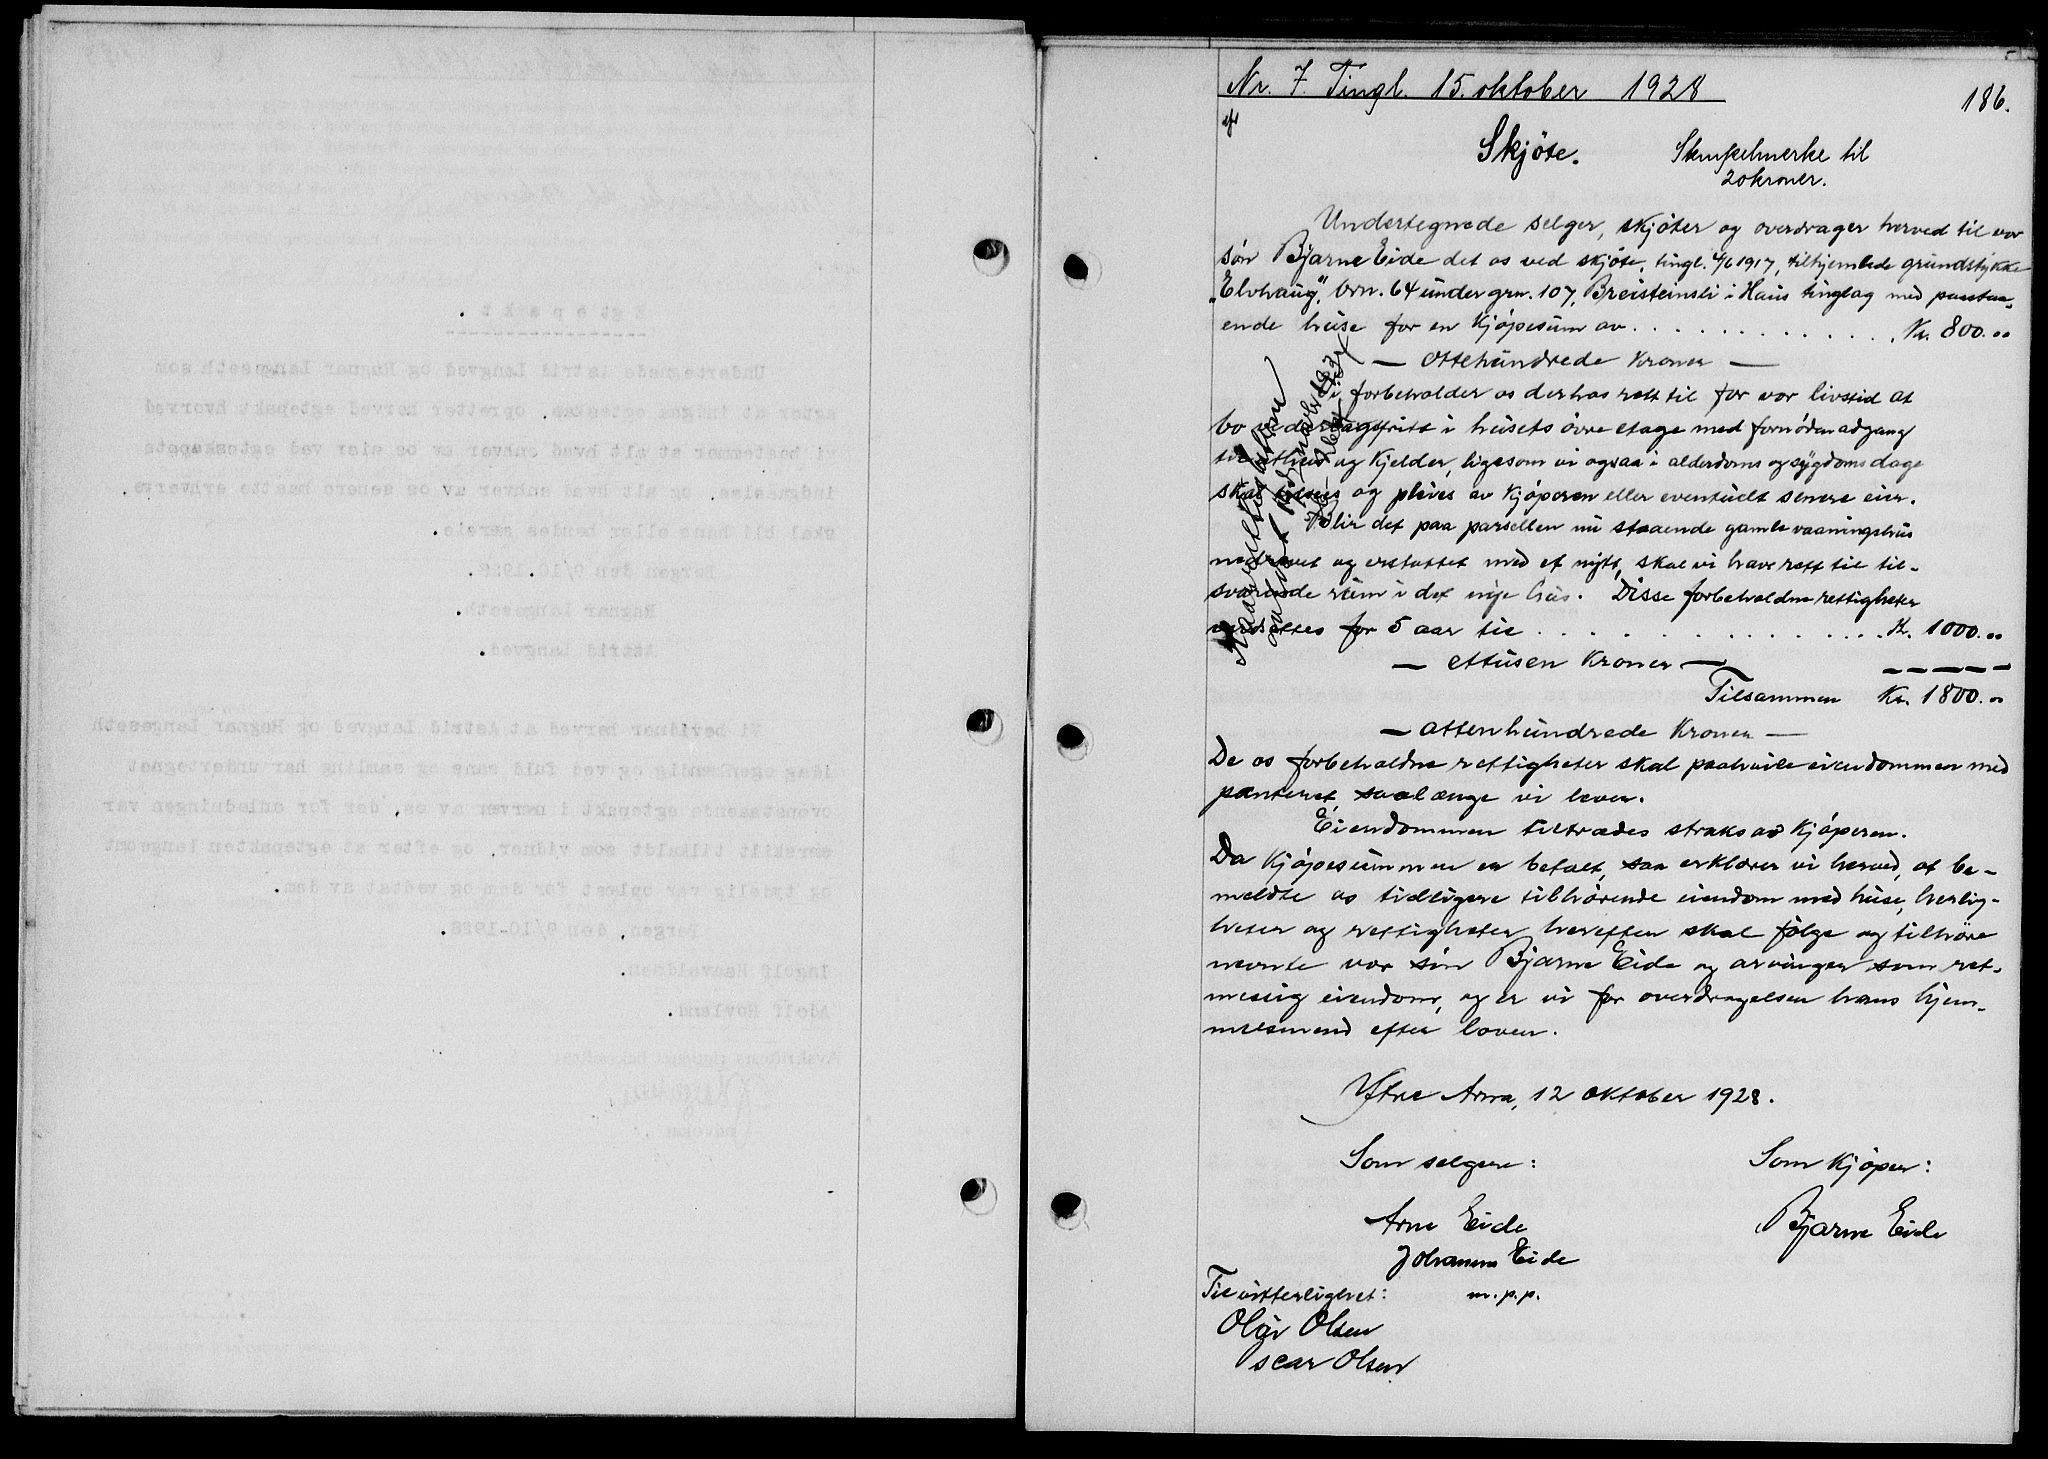 Nr. 7. Tingl. 15. oktober 1928
186.
Skjöte. Stempelmerke til
20 kroner.
Undertegnede selger, skjöter og overdrager herved til vor
sön Bjarne Eide det os ved skjöte, tingl. 4/6 1917, tilhjemlede grundstykke
"Elvhaug", brn. 64 under grn. 107, Breisteinsli i Haus tinglag med paastaa-
ende huse for en kjöpesum av . . . . . . . . . . . . . . Kr. 800.00
— ottehundrede kroner —
Vi forbeholder os derhos rett til for vor livstid at
bo vederlagsfrit i husets övre etage med fornöden adgang
til uthus og kjelder, ligesom vi ogsaa i alderdoms og sygdoms dage
skal og pleies av kjöperen eller eventuelt senere eier.
Blir det paa parsellen nu staaende gamle vaaningshus
nedrevet og erstattet med et nytt, skal vi have rett til til-
svarende rum i det nye hus. Disse forbeholdne rettigheter
verdsettes for 5 aar til . . . . . . . . . . . . . . Kr. 1000.00
— ettusen kroner —
Tilsammen Kr. 1800.00
— attenhundrede kroner —
De os forbeholdne rettigheter skal paahvile eiendommen med
panteret, saalænge vi lever.
Eiendommen tiltrædes straks av kjöperen.
Da kjöpesummen er betalt, saa erklærer vi herved, at be-
meldte os tidligere tilhörende eiendom med huse, herlig-
heter og rettigheter herefter skal fölge og tilhöre
nevnte vor sön Bjarne Eide og arvinger som ret-
messig eiendom, og er vi for overdragelsen hans hjem-
melsmend efter loven.
Ytre Arna, 12 oktober 1928.
Som selgere: Som kjöper:
Arne Eide Bjarne Eide
Johanna Eide
Til vitterlighet: m.p.p.
Olai Olsen
Oscar Olsen
E g t e p a k t .
Undertegnede Astrid Langved og Ragnar Langeseth som
agter at indgaa egteskap, opretter herved egtepakt hvorved
vi bestemmer at alt hvad enhver av os eier ved egteskapets
indgaaelse, og alt hvad enhver av os senere maatte erhverve,
skal bli hans eller hendes særeie.
Bergen den 9/10. 1928.
Ragnar Langeseth.
Astrid Langved.
Vi bevidner herved at Astrid Langved og Ragnar Langeseth
idag egenhændig og ved fuld sans og samling har undertegnet
ovenstaaende egtepakt i nærvær av os, der for anledningen var
særskilt tilkaldt som vidner, og efter at egtepakten langsomt
og tydelig var oplæst for dem og vedtat av dem.
Bergen, den 9/10-1928.
Adolf Hovland.